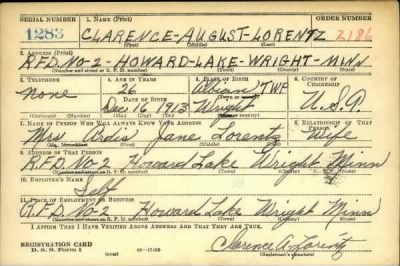 SERIAL NUMBER 1. NAME (Print) ORDER NUMBER
1283 CLARENCE-AUGUST-LORENTZ 2186
(First) (Middle) (Last)
2. ADDRESS (Print)
R.F.D. No-2 - HOWARD-LAKE-WRIGHT-MINN
(Number and street or R. F. D. number) (Town) (County) (State)
3. TELEPHONE 4. AGE IN YEARS 5. PLACE OF BIRTH 6. COUNTRY OF CITIZENSHIP
None 26 Albion TWP.
DATE OF BIRTH
Dec 16 1913 Wright U.S.A.
7. NAME OF PERSON WHO WILL ALWAYS KNOW YOUR ADDRESS 8. RELATIONSHIP OF THAT PERSON
Mrs Ardis Jane Lorentz Wife
(Mr., Mrs., Miss) (First) (Middle) (Last)
9. ADDRESS OF THAT PERSON
R.F.D. No-2 Howard Lake Wright Minn
(Number and street or R. F. D. number) (Town) (County) (State)
10. EMPLOYER'S NAME
Self
11. PLACE OF EMPLOYMENT OR BUSINESS
R.F.D. No-2 Howard Lake Wright Minn
(Number and street or R. F. D. number) (Town) (County) (State)
I AFFIRM THAT I HAVE VERIFIED ABOVE ANSWERS AND THAT THEY ARE TRUE.
REGISTRATION CARD
D. S. S. FORM 1
Clarence A. Lorentz
(Registrant's signature)